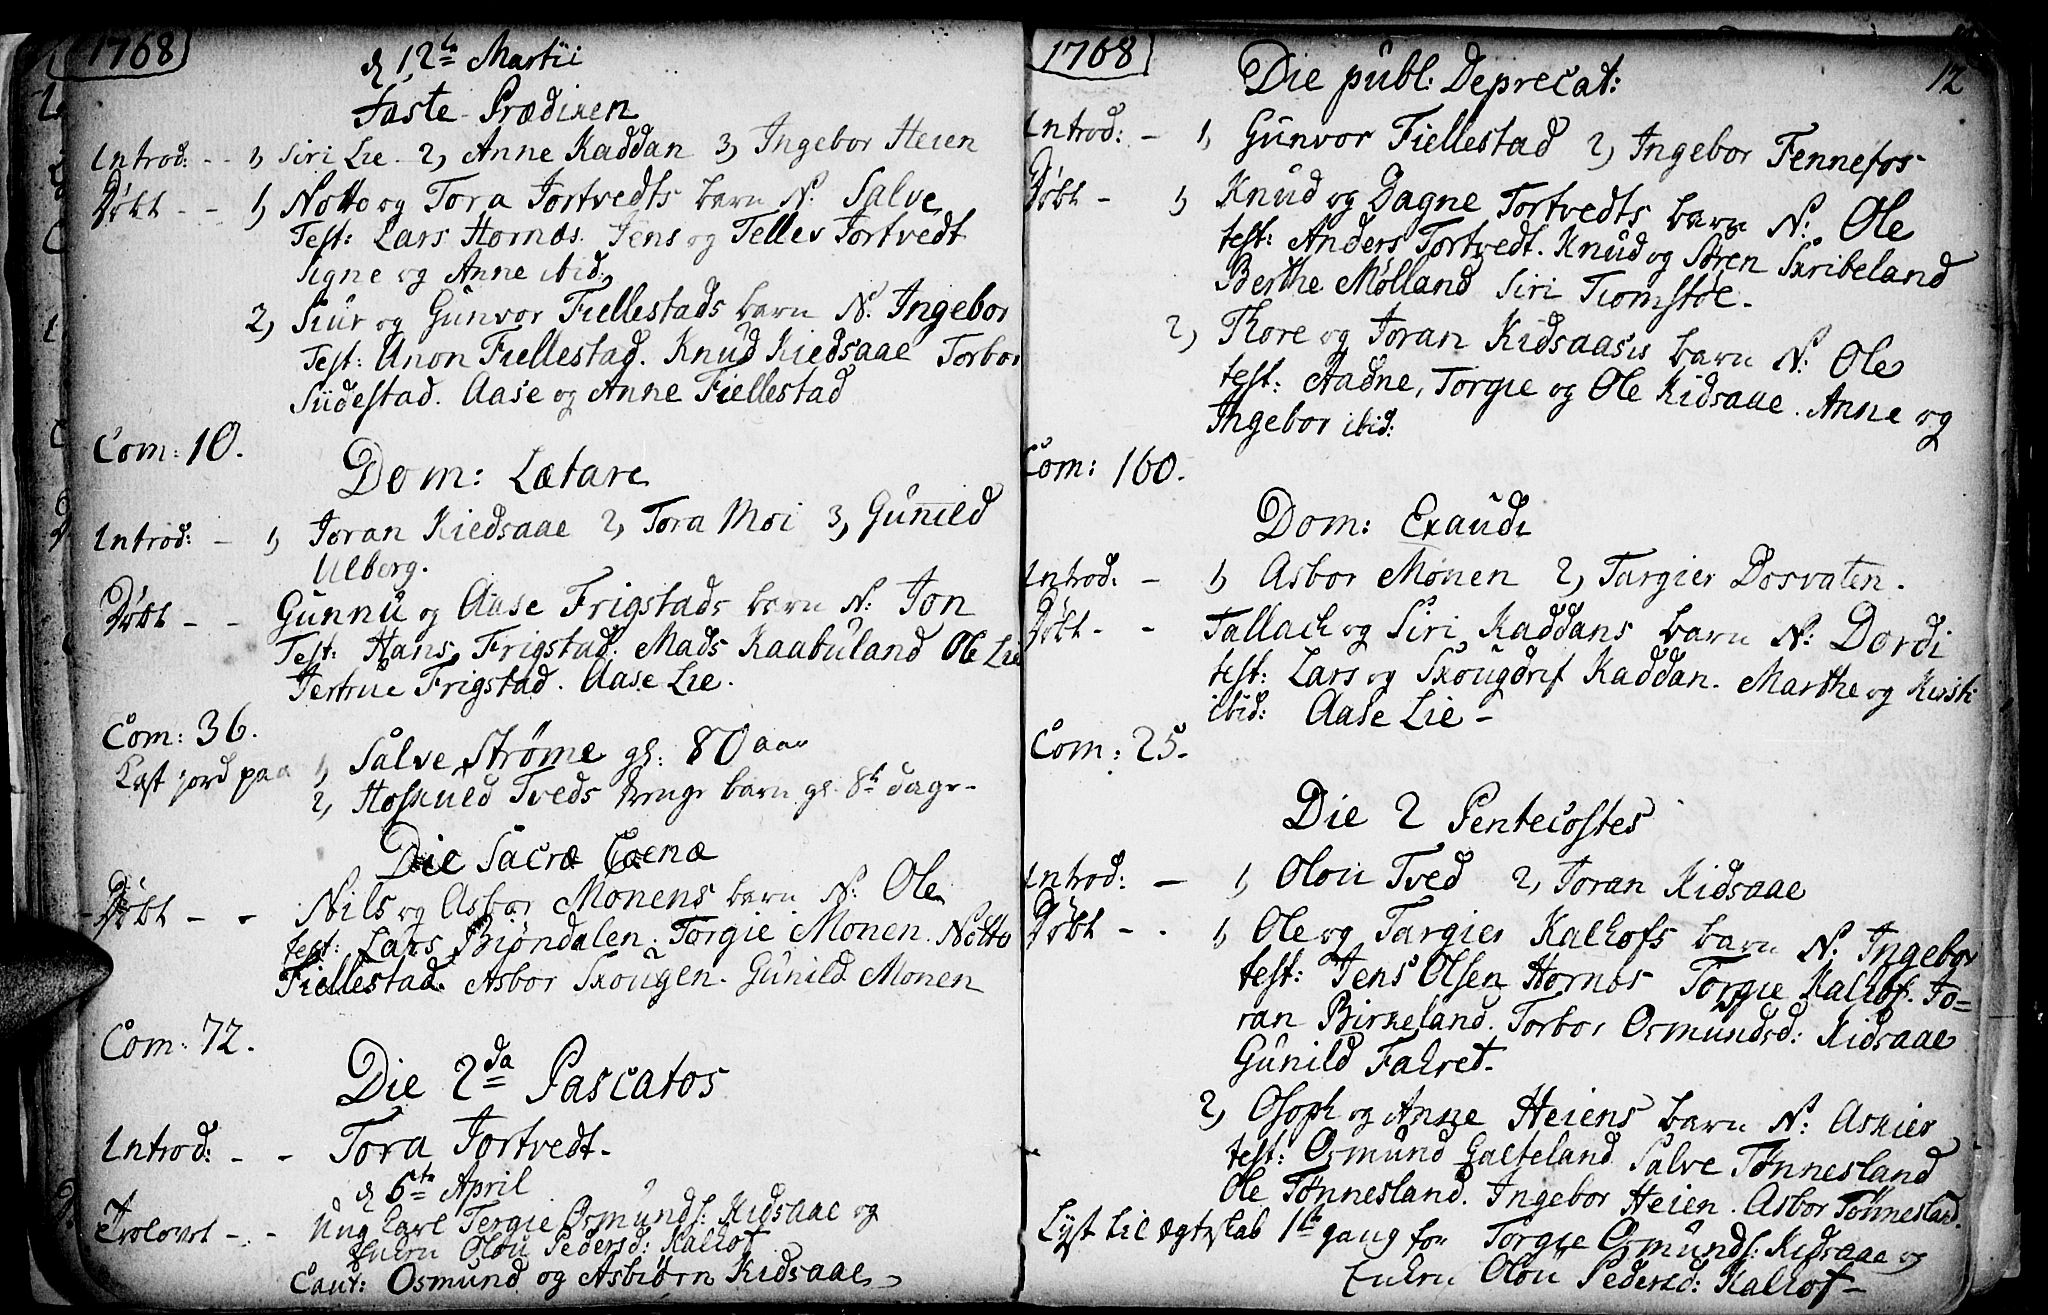 1768
d 12te Martii
Faste-Prædiken
Introd: - - 1, Siri Lie - 2, Anne Kaddan 3, Ingebor Heien
Døbt - - 1, Notto og Tora Tortvedts barn N: Salve
Test: Lars Hornæs. Jens og Tellev Tortvedt
Signe og Anne ibid.
2, Siur og Gunvor Fiellestads barn N: Ingebor
Test: Unon Fiellestad. Knud Kiedsaae Torbor
Sudestad. Aase og Anne Fiellestad
Com: 10.
Dom: Lætare
Introd: - 1, Joran Kiedsaae 2, Tora Moi 3, Gunild
Ulberg.
Døbt - - Gunnu og Aase Frigstads barn N: Jon
Test: Hans Frigstad. Mads Kaabuland Ole Lie
Jertrue Frigstad. Aase Lie.
Com: 36.
Kast jord paa 1, Salve Strøme gl: 80 aar
2, Hoskuld Tveds drenge barn gl. 8te dage-
Die Sacræ Coenæ
Døbt - - Nils og Asbor Monens barn N: Ole
test: Lars Biøndalen. Torgie Monen. Notto
Fiellestad. Asbor Skougen. Gunild Monen
Com: 72.
Die 2da Pascatos
Introd: - - Tora Tortvedt-
d 6te April
Trolovet - - Ung karl Tergie Osmunds: Kidsaae og
Enken Olou Pedersd: Kalhof
Caut: Osmund og Asbiørn Kidsaae-
1768
12
Die publ: Deprecat:
Introd: - 1, Gunvor Fiellestad 2, Ingebor Fennefos-
Døbt - 1, Knud og Dagne Tortvedts barn N: Ole
test: Anders Tortvedt. Knud og Søren Skribeland
Berthe Mølland Siri Tiomstøe-
2, Thore og Joran Kidsaases barn N: Ole
test: Aadne, Torgie og Ole Kidsaae. Anne og
Ingebor ibid:
Com: 160.
Dom: Exaudi
Introd: - 1, Asbor Monen 2, Targier Dosvaten.
Døbt - - Tallack og Siri Kaddans barn N: Dordi
test: Lars og Skougdrif Kaddan. Marthe og Kirsti
ibid: Aase Lie-
Com: 25-
Die 2 Pentecostes
Introd: - 1, Olou Tved 2, Joran Kidsaae
Døbt - - 1, Ole og Targier Kalhofs barn N: Ingebor
test: Jens Olsen Hornes Torgie Kalhof. Jo-
ran Birkeland. Torbor Osmundsd: Kidsaae
Gunild Falret-
2, Osoph og Anne Heiens barn N: Askier
test: Osmund Galteland Salve Tønnesland
Ole Tønnesland. Ingebor Heien. Asbor Tønnesland.
Lyst til ægteskab 1te gang for Torgie Osmunds: Kidsaae og
Enken Olou Pedersd: Kalhof-